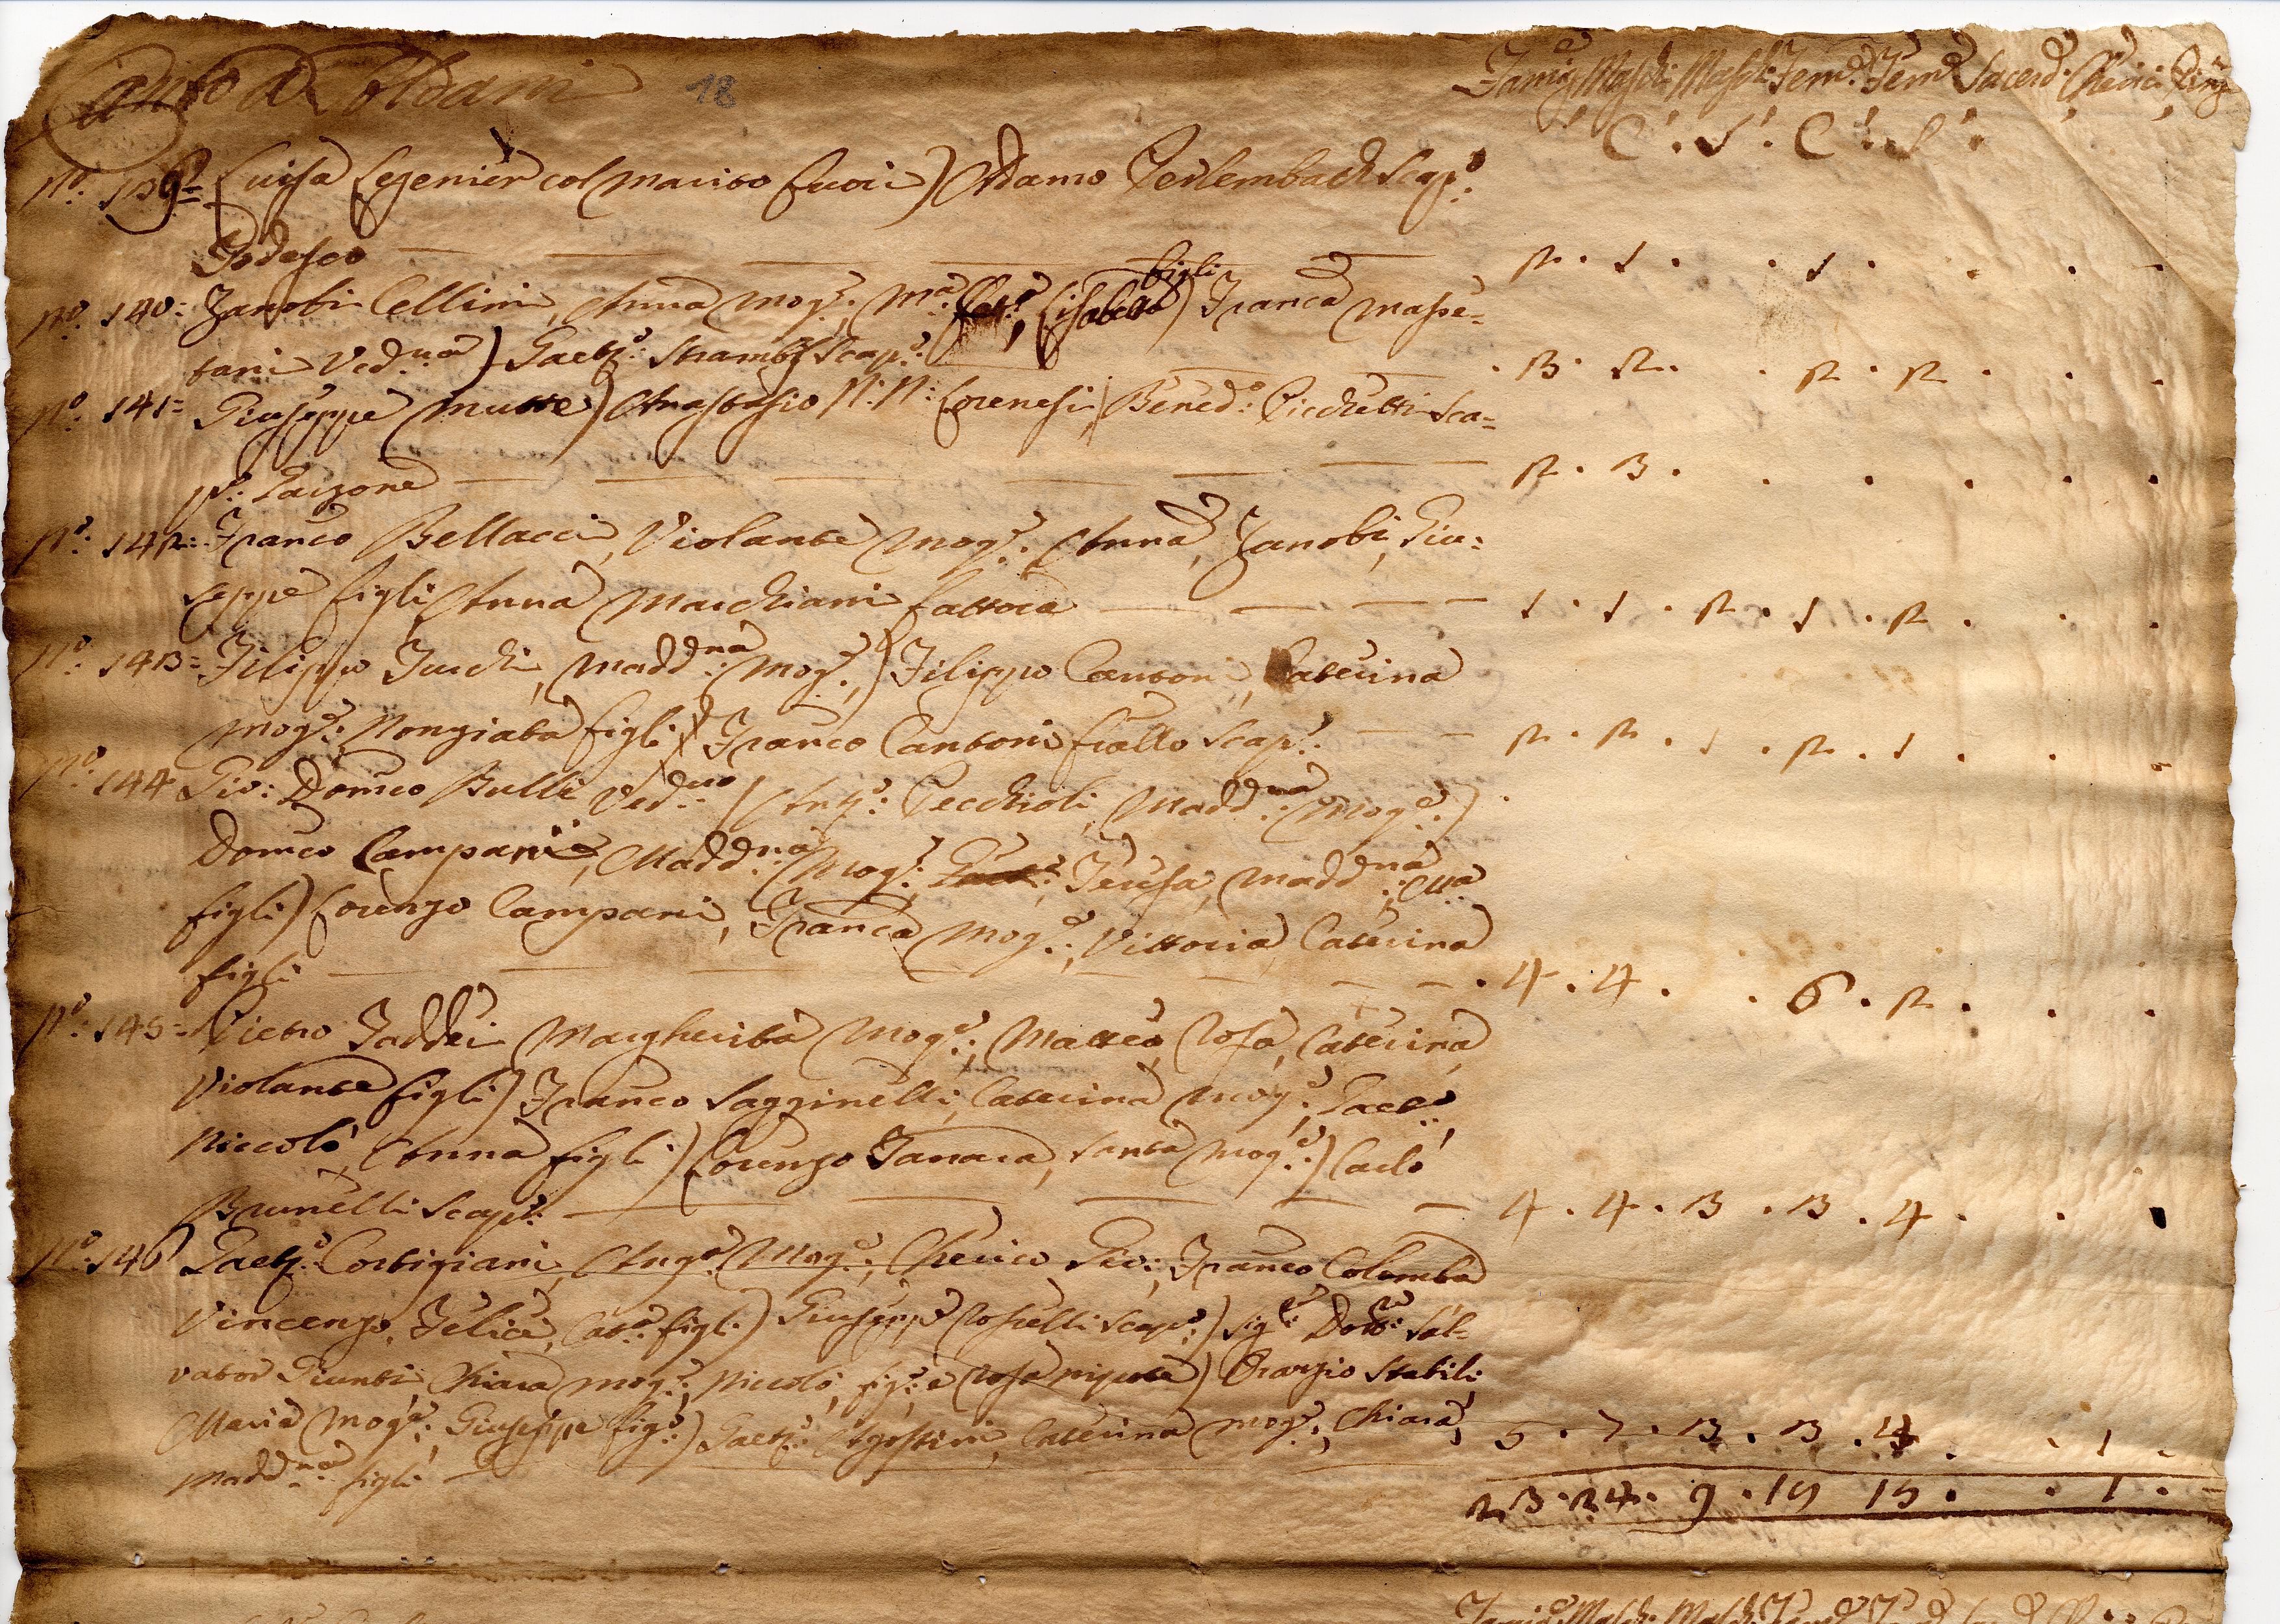 Canto a Soldani 18
Famig.e Maschi Maschi Fem.e Fem.e Sacerd. Cherici
C. S. C. S.
N.o 139= Luisa col marito fuori) Adamo Scap.o
Todesco — 2 . 1 . . 1 . . . -
N.o 140: Zanobi Cellini, Anna Mog.e, M.a Lisabetta figli) Fran.ca Masse=
tani Ved.va) Gaet.o Scap.o . 3 . 2 . . 2 . 2 . . -
N.o 141= Giuseppe Mutte) Anastasio N: N: Lorenesi) Bened.o Picchetti Sca=
p.o Garzone — 2 . 3 . . . . . .
N.o 142: Franco Bellacci, Violante Mog.e, Anna, Zanobi, Giu=
seppe figli, Anna Marchiani fattora — 1 . 1 . 2 . 1 . 2 . . .
N.o 143= Filippo Fuschi, Madd.na Mog.e,) Filippo Cantoni, Caterina
Mog.e: Nonziata figli) Franco Cantoni fratello Scap.o — 2 . 2 . 1 . 2 . 1 . . -
N.o 144 Gio: Dom.co Bulli Ved.vo) Ant.o Pecchioli, Madd.na Mog.e)
Dom.co Campani, Madd.na Mog.e, Teresa, Madd.na, M.a
figli) Lorenzo Campani, Fran.ca Mog.e, Vittoria, Caterina
figli — . 4 . 4 . . 6 . 2 . . .
N.o 145= Pietro Taddei Margherita Mog.e, Matteo, Rosa, Caterina,
Violante figli) Franco Sagginelli, Caterina Mog.e, Gaet.o,
Niccolò, Anna figli) Lorenzo Fanara, Santa Mog.e) Carlo
Brunelli Scap.o — 4 . 4 . 3 . 3 . 4 . . .
N.o 146 Gaet.o Corbigiani, Ang.a Mog.e, Cherico Gio:, Franco, Colomba
Vincenzo, Felice, Cat.a figli) Giuseppe Rosselli Scap.o) Sig.r Dott.re Sal=
vator Giunti, Chiara mog.e, Niccolò, fig.o e Rosa nipote) Orazio Stabili
Maria Mog.e, Giuseppe fig.o) Gaet.o Agostini, Caterina Mog.e, Chiara,
Madd.na figli — 5 . 7 . 3 . 3 . 4 . . 1 .
23 . 24 . 9 . 19 15 . . 1 . -